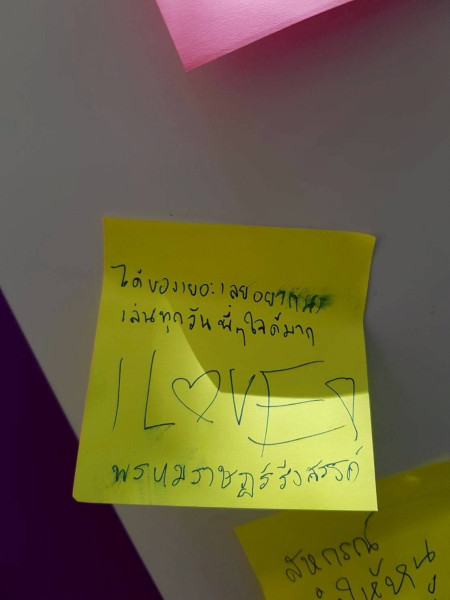 ได้ของเยอะเลยอยากมา
เล่นทุกวัน พี่ๆใจดีมาก
I LOVE
พรหมราษฎร์รังสรรค์
สหกรณ์
ให้หนู